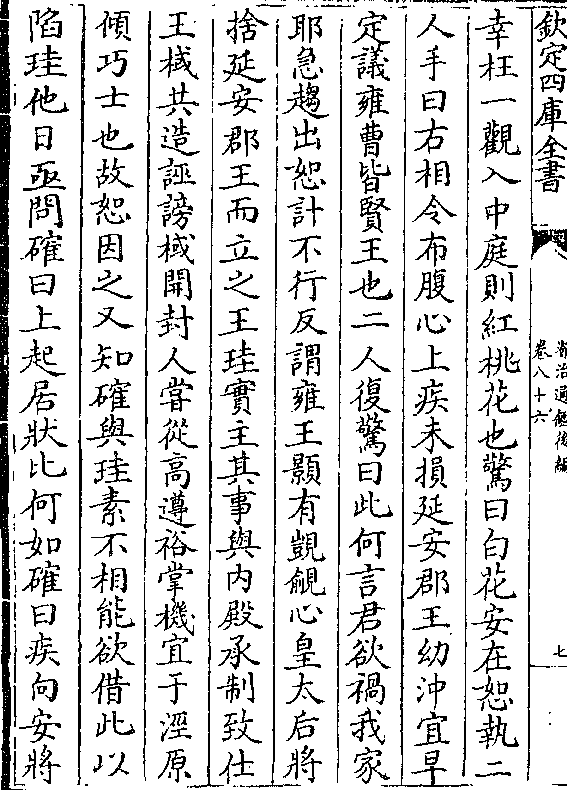 欽定四庫全書
資治通鑑後編
卷八十六
七
幸枉一觀入中庭則紅桃花也驚曰白花安在恕執二
人手曰右相令布腹心上疾未損延安郡王幼沖宜早
定議雍曹皆賢王也二人復驚曰此何言君欲禍我家
耶急趨出恕計不行反謂雍王顥有覬覦心皇太后將
捨延安郡王而立之王珪實主其事與內殿承制致仕
王棫共造誣謗棫開封人嘗從高遵裕掌機宜于涇原
傾巧士也故恕因之又知確與珪素不相能欲借此以
陷珪他日亟問確曰上起居狀比何如確曰疾向安將